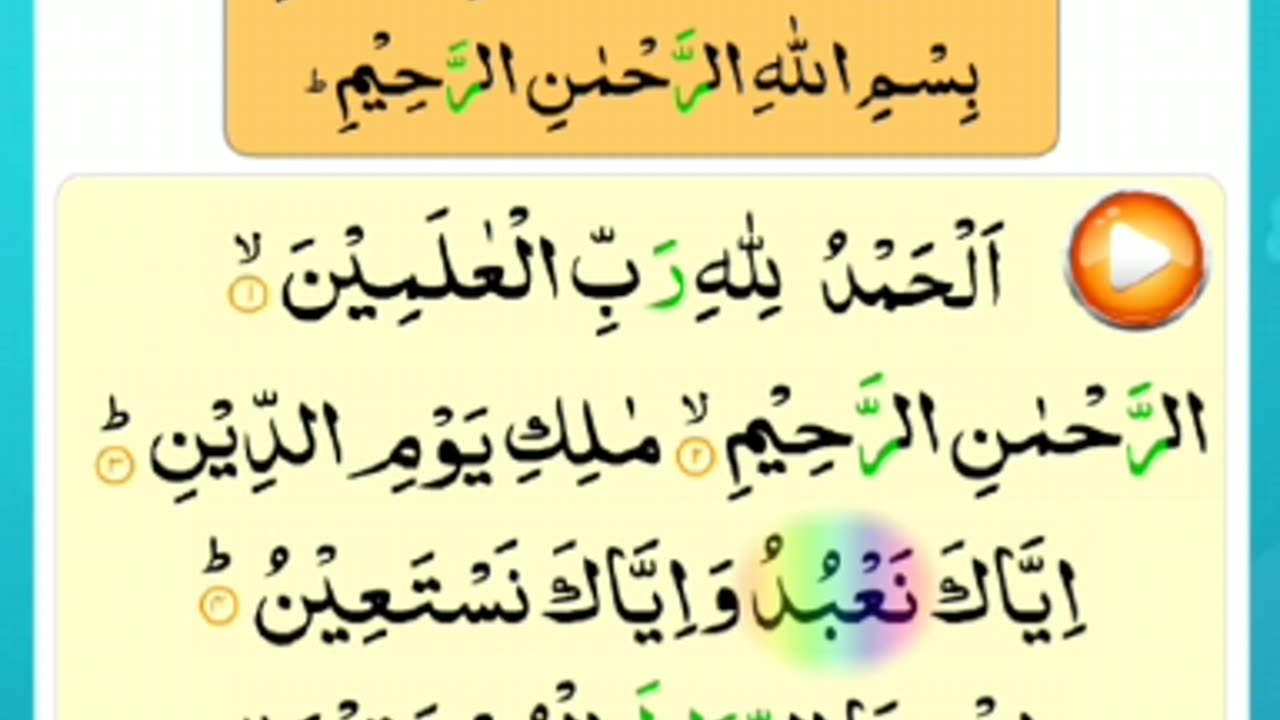 بِسْمِ اللهِ الرَّحْمٰنِ الرَّحِيْمِ ؕ
اَلْحَمْدُ لِلّٰهِ رَبِّ الْعٰلَمِيْنَ ۙ ١
الرَّحْمٰنِ الرَّحِيْمِ ۙ ٢ مٰلِكِ يَوْمِ الدِّيْنِ ؕ ٣
اِيَّاكَ نَعْبُدُ وَاِيَّاكَ نَسْتَعِيْنُ ؕ ٤